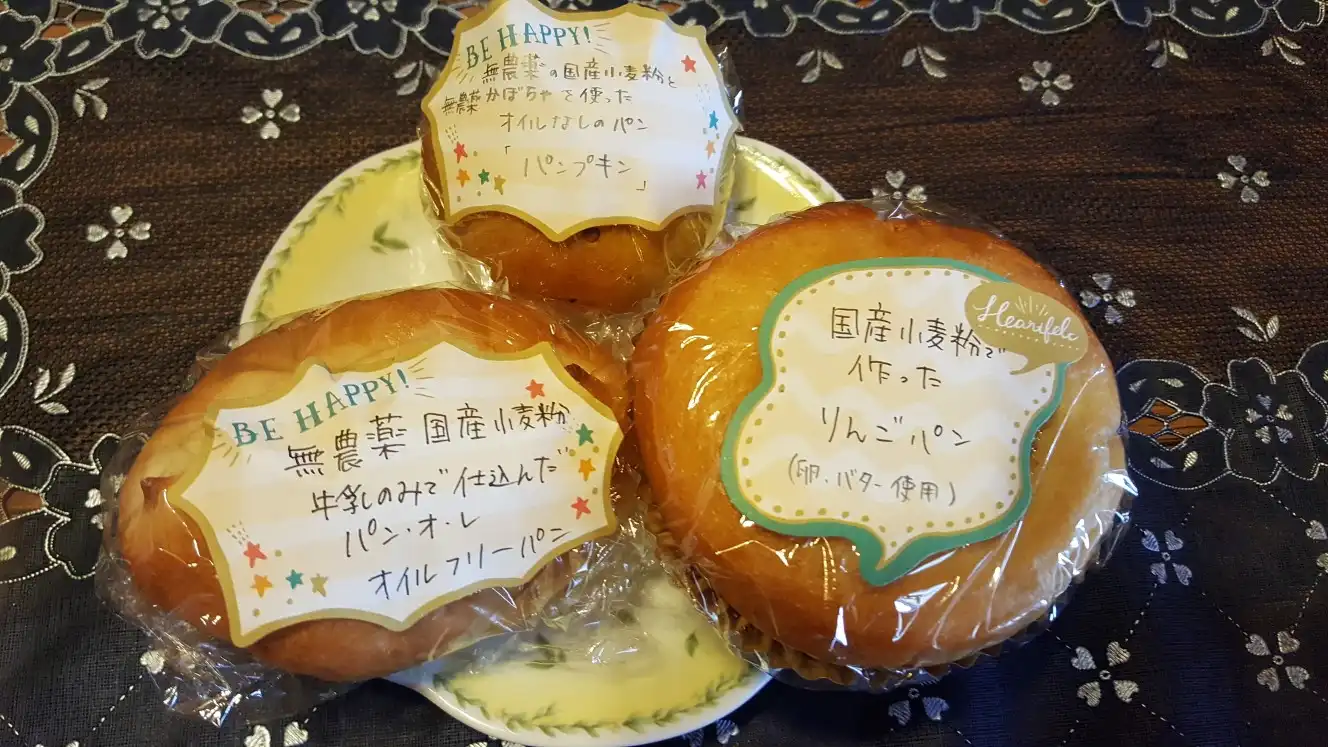 BE HAPPY!
無農薬の国産小麦粉と
無農薬かぼちゃを使った
オイルなしのパン
「パンプキン」
BE HAPPY!
無農薬 国産小麦粉
牛乳のみで仕込んだ
パン・オ・レ
オイルフリーパン
Heartfelt
国産小麦粉で
作った
りんごパン
(卵、バター使用)